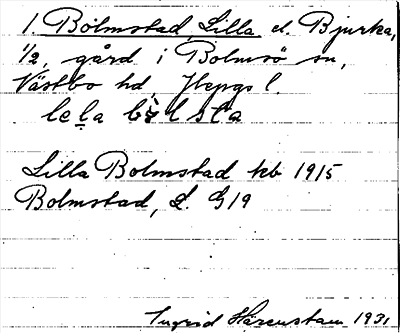 1. Bolmstad, Lilla el. Bjurka,
1/2, gård i Bolmsö sn,
Västbo hd, Jkpgs l.
lela bòlsta
Lilla Bolmstad kb 1915
Bolmstad, L. G19
Ingrid Härenstam 1931